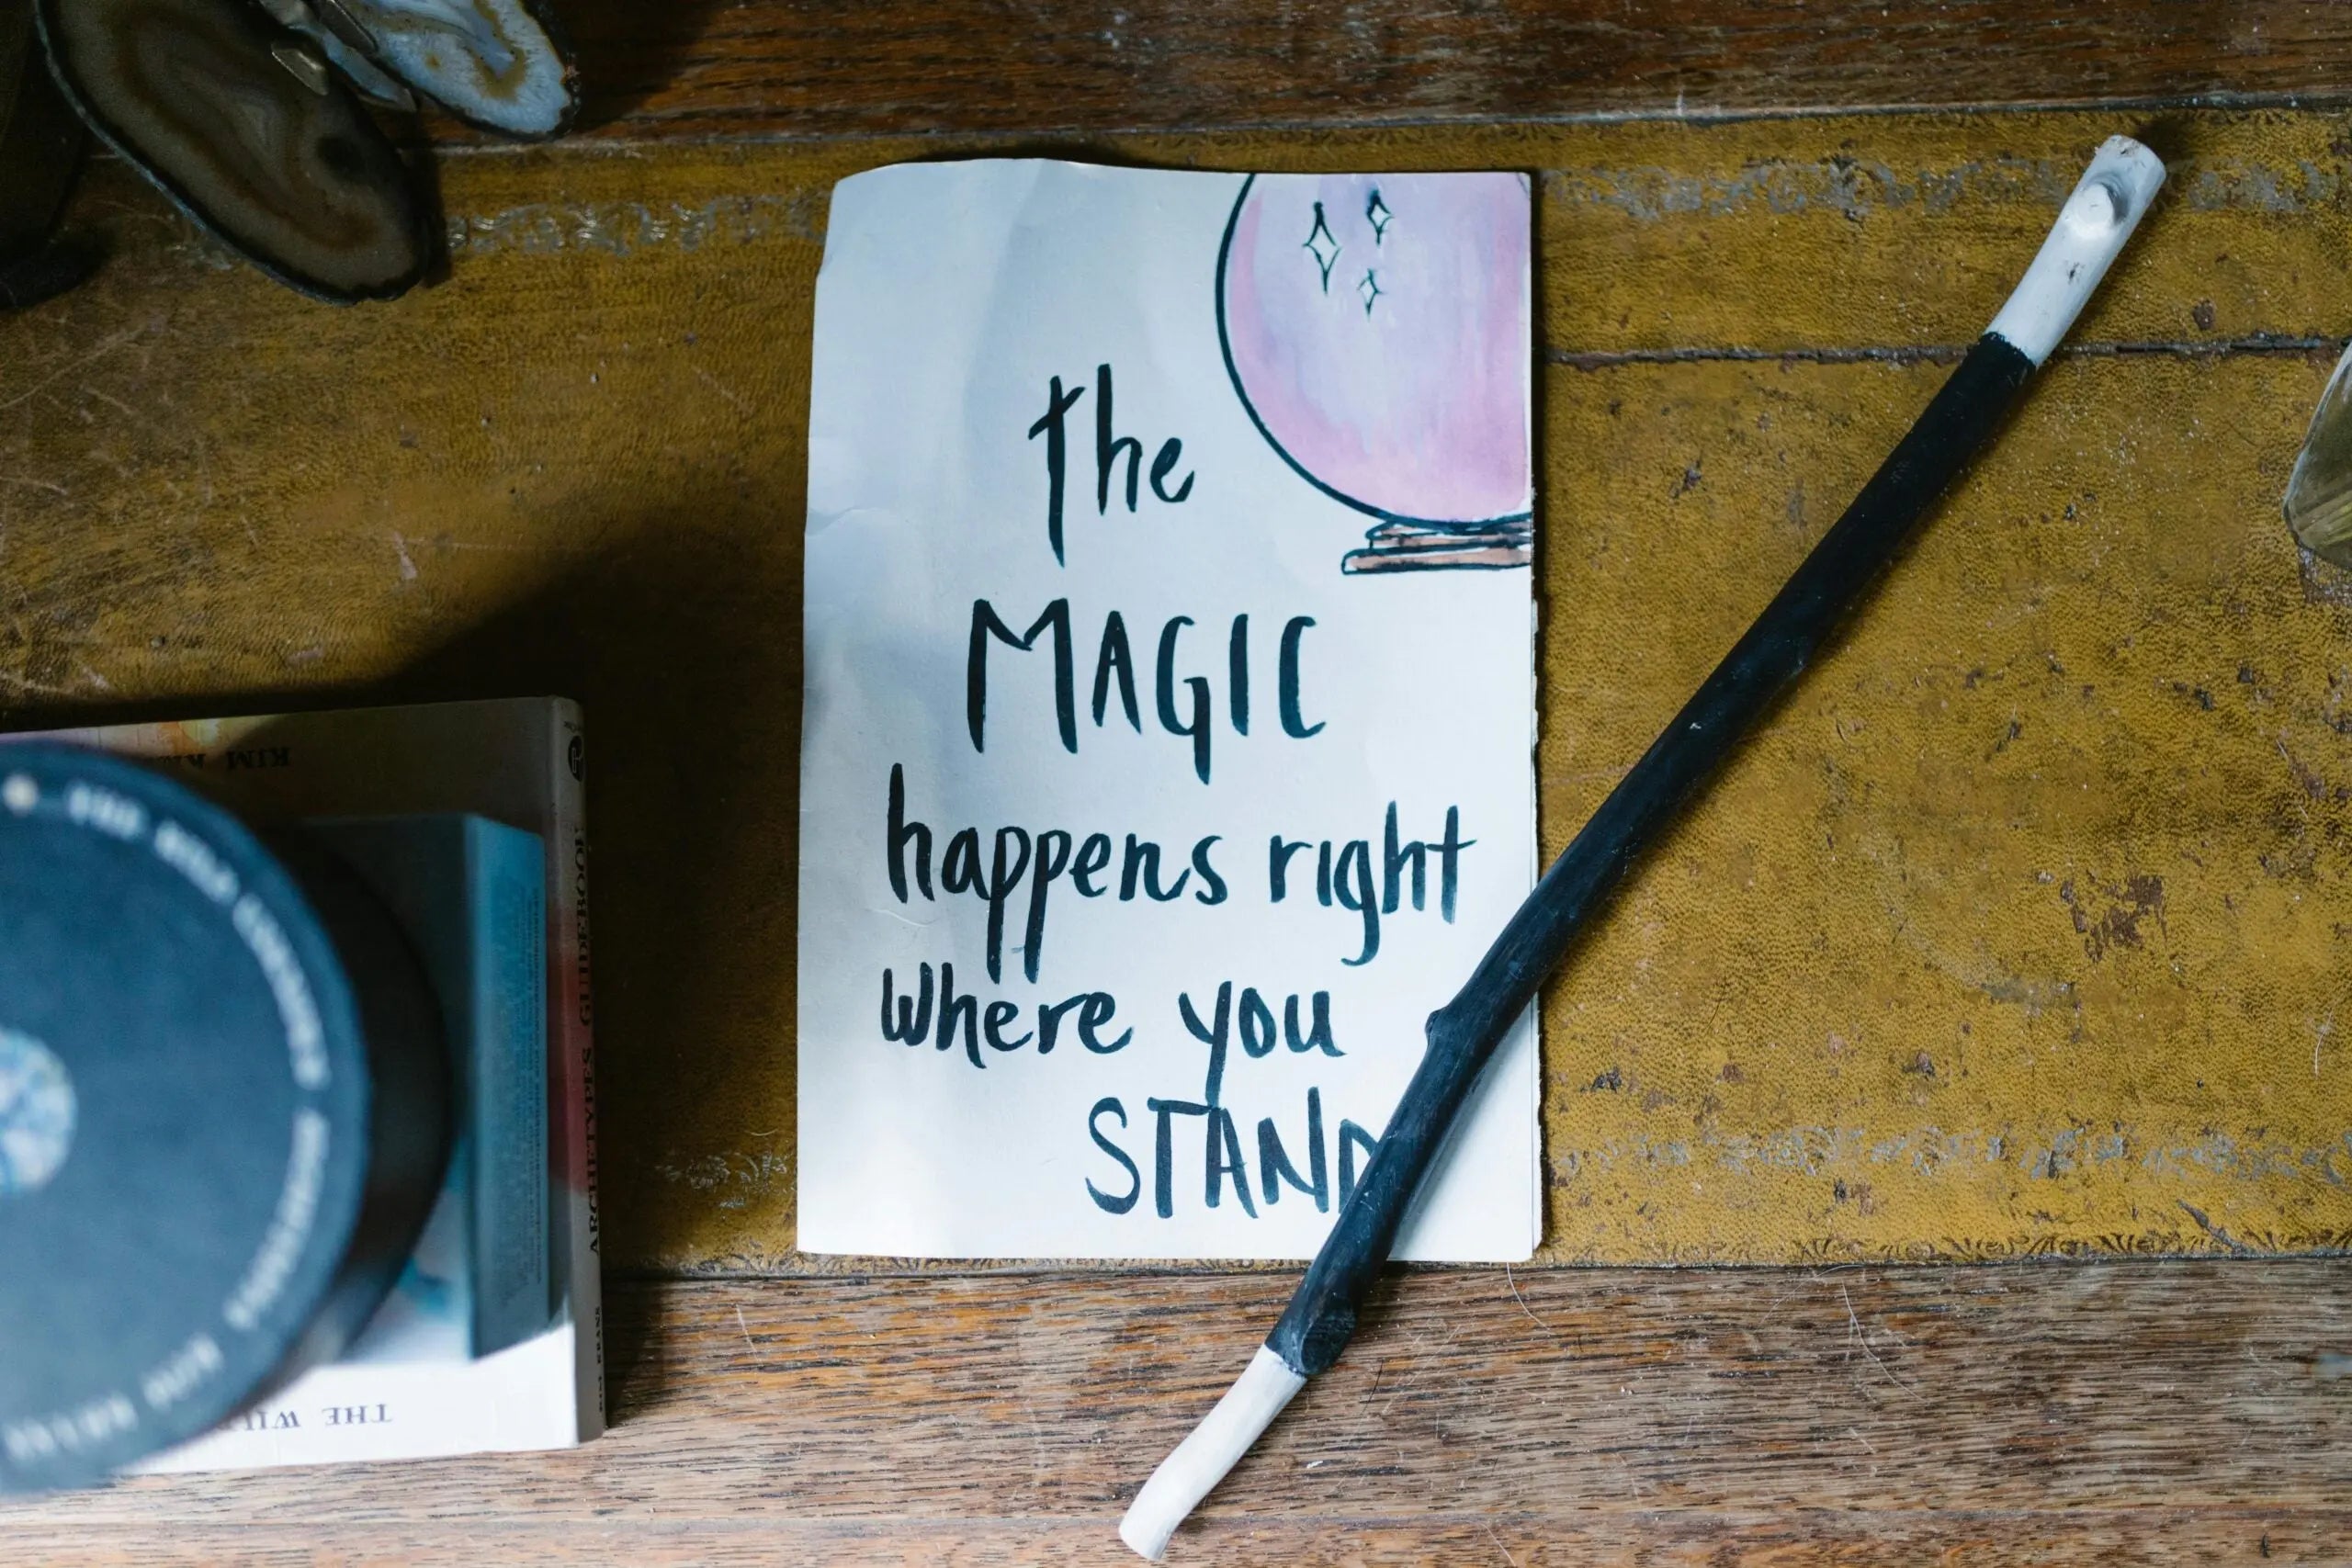 the
MAGIC
happens right
where you
STAND
KIM
THE
ARCHETYPES GUIDEBOOK
KIM KRANS